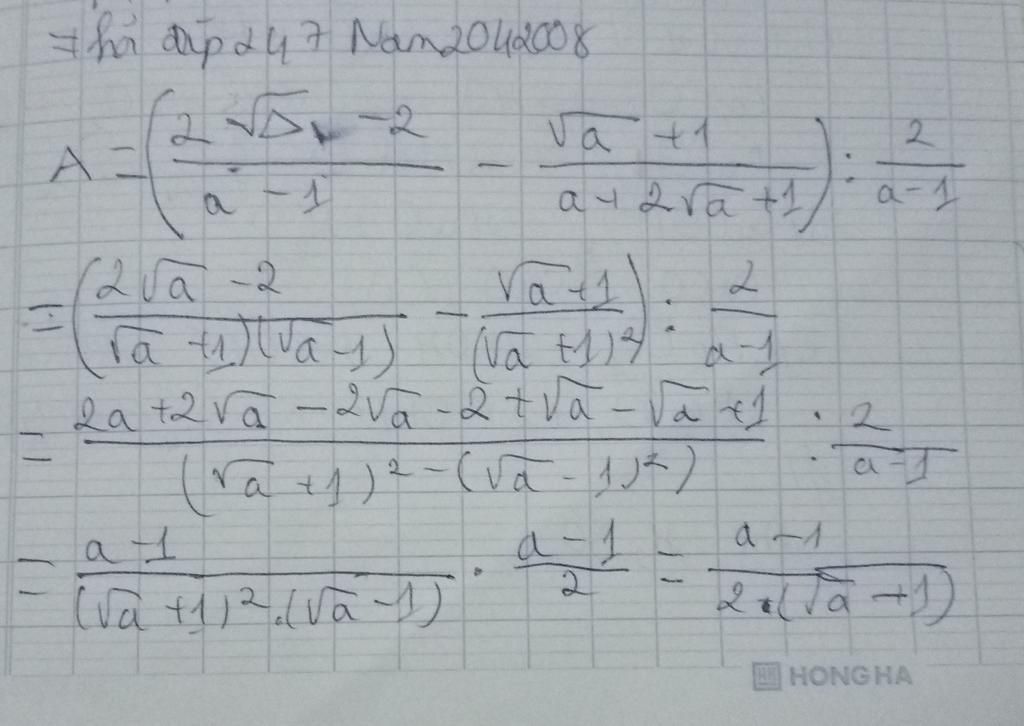 => hỏi đáp 247 Nam2042008
A = ( (2√a - 2)/(a - 1) - (√a + 1)/(a + 2√a + 1) ) : 2/(a - 1)
= ( (2√a - 2)/((√a + 1)(√a - 1)) - (√a + 1)/((√a + 1)²) ) : 2/(a - 1)
= (2a + 2√a - 2√a - 2 + √a - √a + 1)/((√a + 1)² - (√a - 1)²) : 2/(a - 1)
= (a - 1)/((√a + 1)².(√a - 1)) . (a - 1)/2 = (a - 1)/(2.(√a + 1))
HONG HA